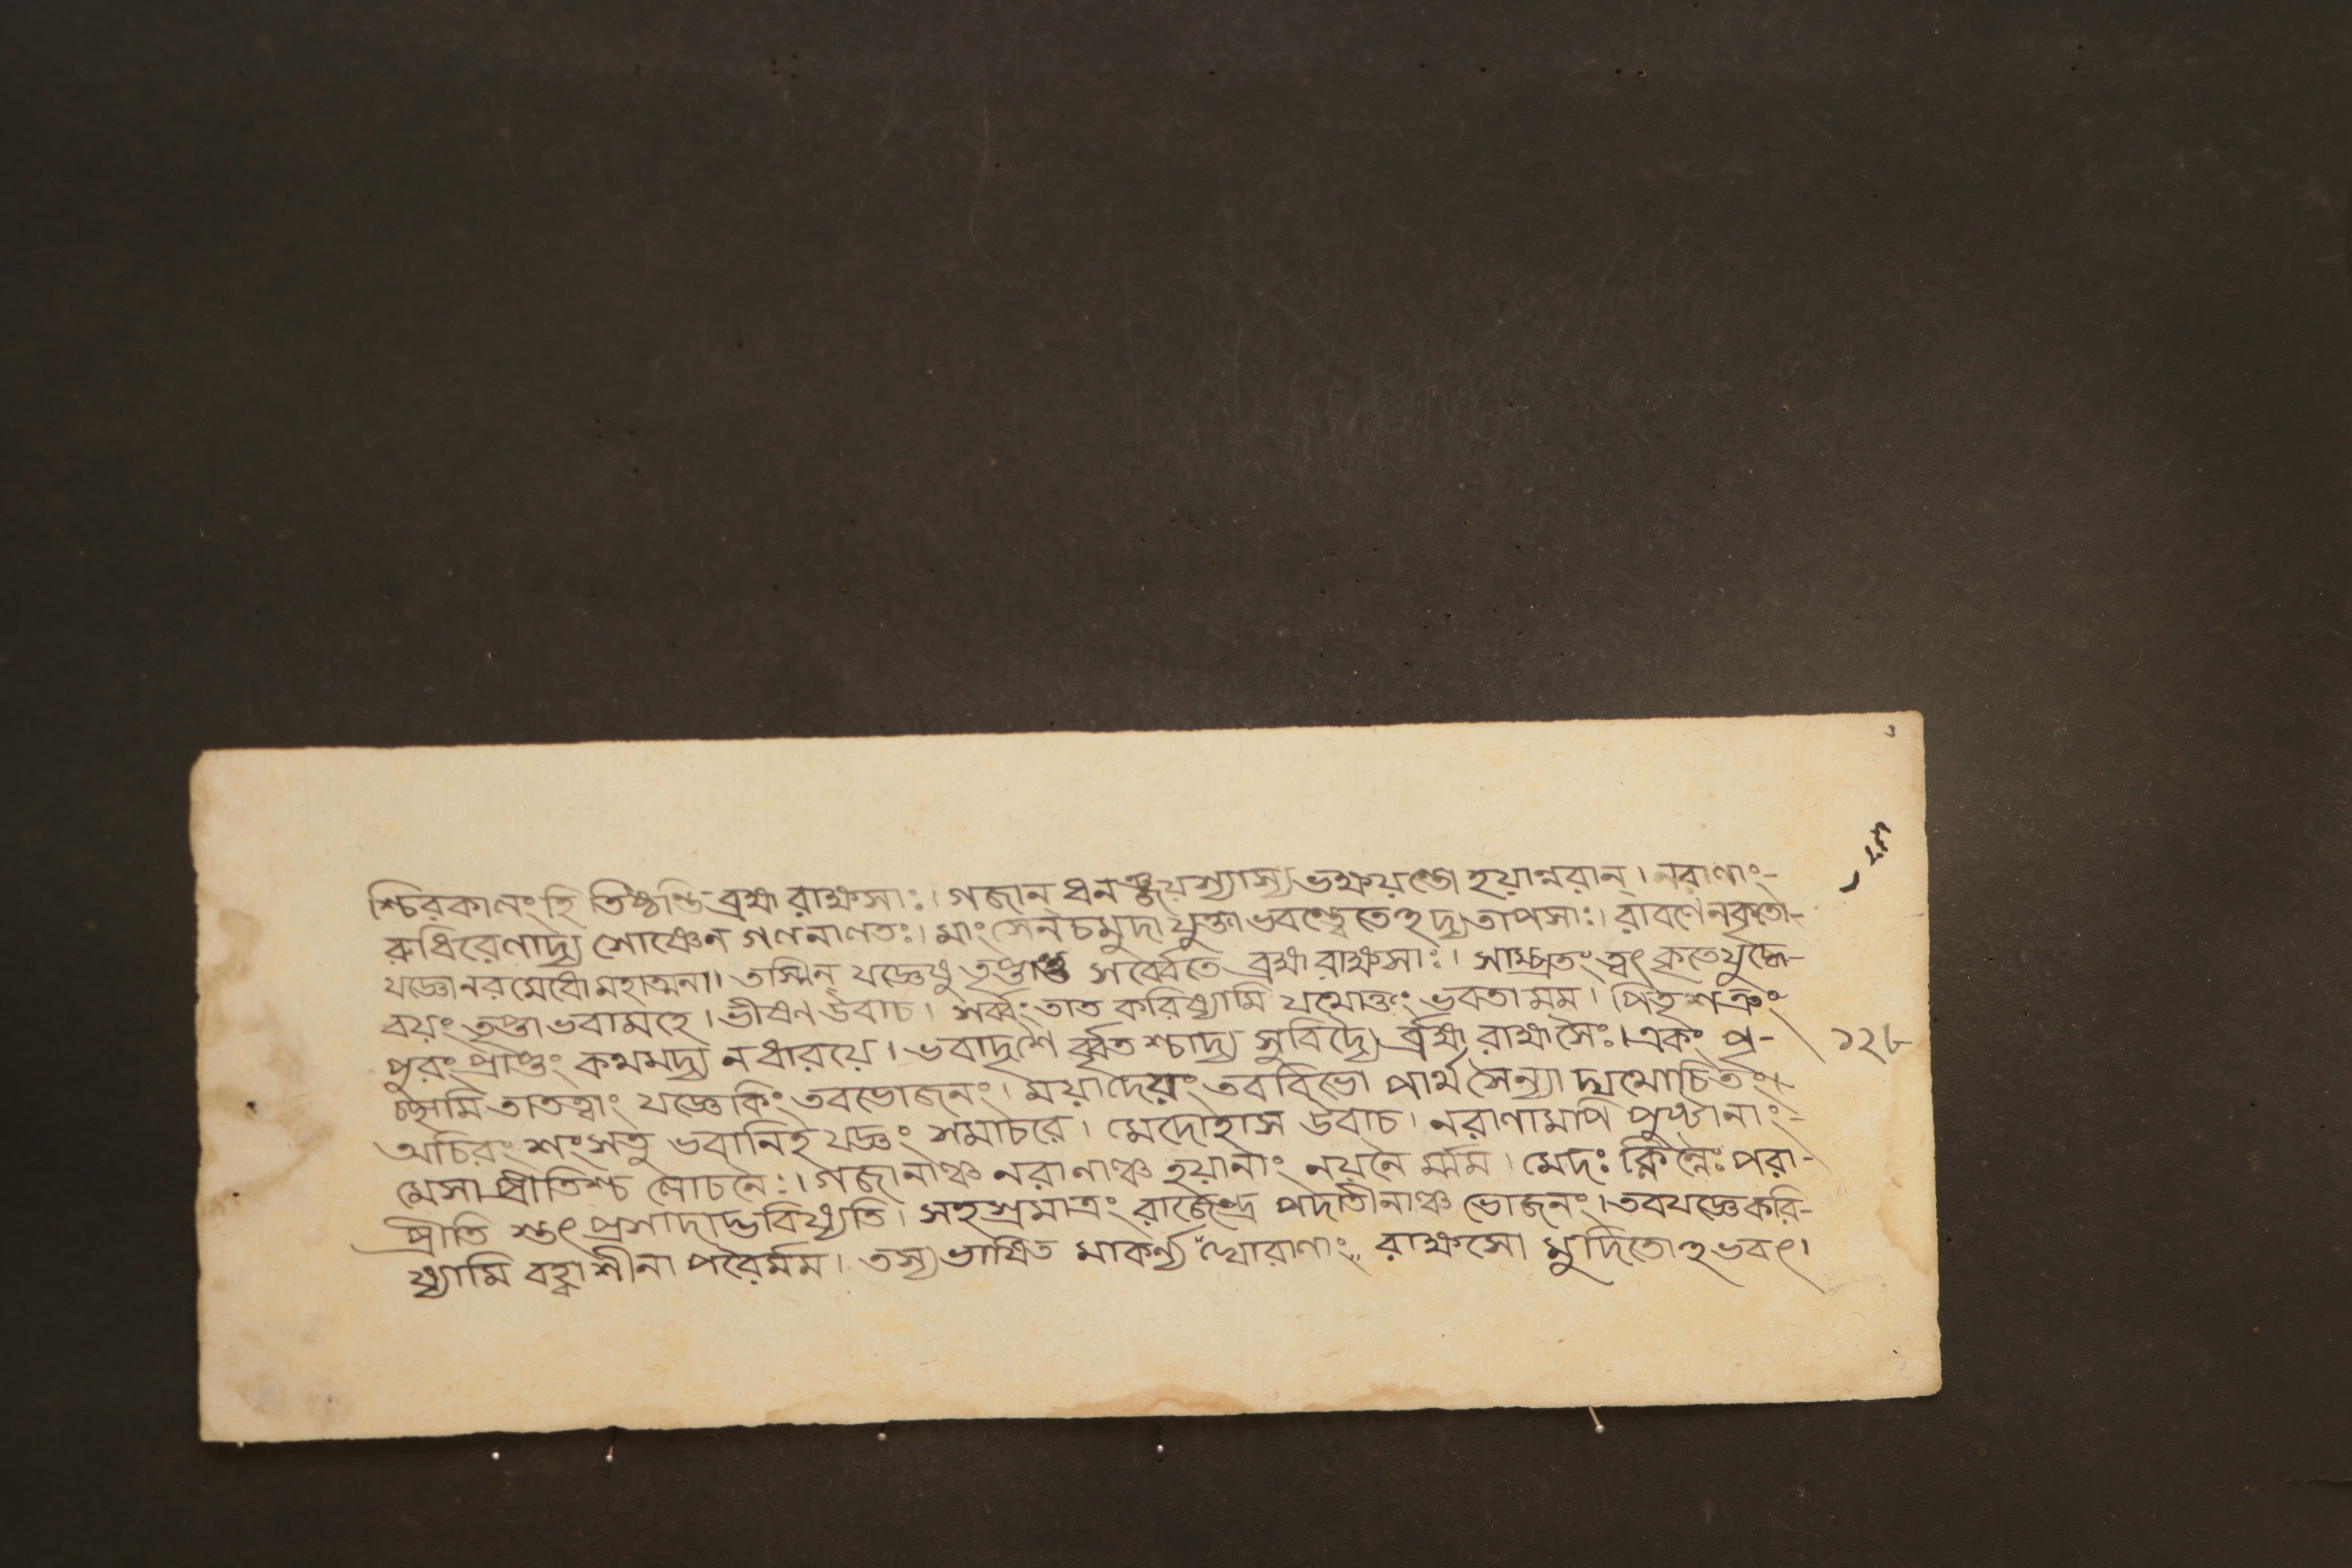 শ্চিরকালংহি তিষ্ঠন্তি ব্রহ্ম রাক্ষসাঃ। গজান্ ধনঞ্জয়স্যাস্য ভক্ষয়ন্তো হয়ান্নরান্। নরাণাং-
রুধিরেণাদ্য শোঞ্চেন গণনাণতঃ। মাংসেনচমুদাযুক্তা ভবন্ত্বেতেহদ্য তাপসাঃ। রাবণেনকৃতো-
যজ্ঞোনরমেধোমহাত্মনা। তস্মিন্ যজ্ঞেষু তৃপ্তাশ্চ সর্ব্বেতে ব্রহ্ম রাক্ষসাঃ। সাম্প্রতং ত্বৎকৃতেযুদ্ধে-
বয়ং তৃপ্তাভবামহে। ভীষণ উবাচ। শর্ব্বং তাত করিষ্যামি যথোক্তং ভবতা মম। পিতৃশত্রুং
পুরং প্রাপ্তং কথমদ্য নধারয়ে। ভবাদৃশৈ র্ব্বৃতশ্চাদ্য সুবিদ্যৈ র্ব্রহ্ম রাক্ষসৈঃ। একং পৃ-
চ্ছামি তাতত্বাং যজ্ঞেকিং তবভোজনং। ময়াদেয়ং তববিভো পার্থসৈন্যা দ্যথোচিতং।
অচিরং শংসতু ভবানিহ যজ্ঞং সমাচরে। মেদোহাস উবাচ। নরাণামপি পুষ্টানাং-
মেসা প্রীতিশ্চ লোচনৈঃ। গজানাঞ্চ নরাণাঞ্চ হয়ানাং নয়নৈ র্ম্মম। মেদঃ ক্লিন্নৈঃ পরা-
প্রীতি স্তৎ প্রসাদাদ্ভবিষ্যতি। সহস্রমাত্রং রাজেন্দ্র পদাতীনাঞ্চ ভোজনং। তবযজ্ঞেকরি-
ষ্যামি বহ্বাশীনা পরৈর্মম। তস্য ভাষিত মাকর্ণ্য ঘোরাণাং রাক্ষসো মুদিতোহভবৎ।
১২৮